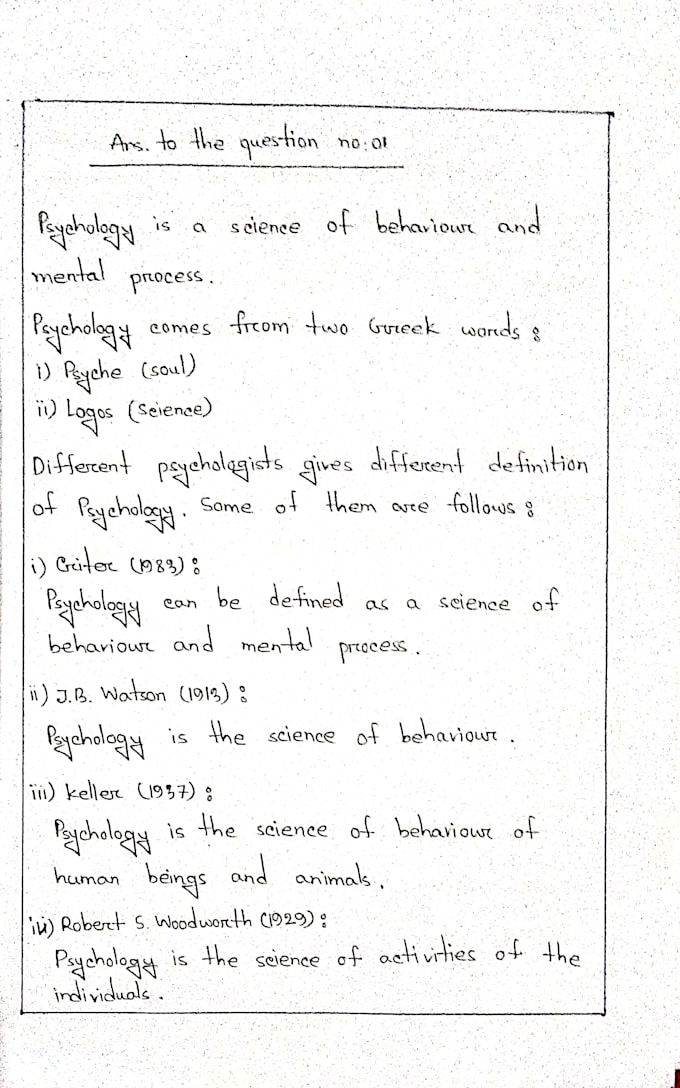 Ans. to the question no: 01
Psychology is a science of behaviour and
mental process.
Psychology comes from two Greek words :
i) Psyche (soul)
ii) Logos (Science)
Different psychologists gives different definition
of Psychology. Some of them are follows :
i) Criter (1983) :
Psychology can be defined as a science of
behaviour and mental process.
ii) J.B. Watson (1913) :
Psychology is the science of behaviour.
iii) Keller (1937) :
Psychology is the science of behaviour of
human beings and animals.
iv) Robert S. Woodworth (1929) :
Psychology is the science of activities of the
individuals.